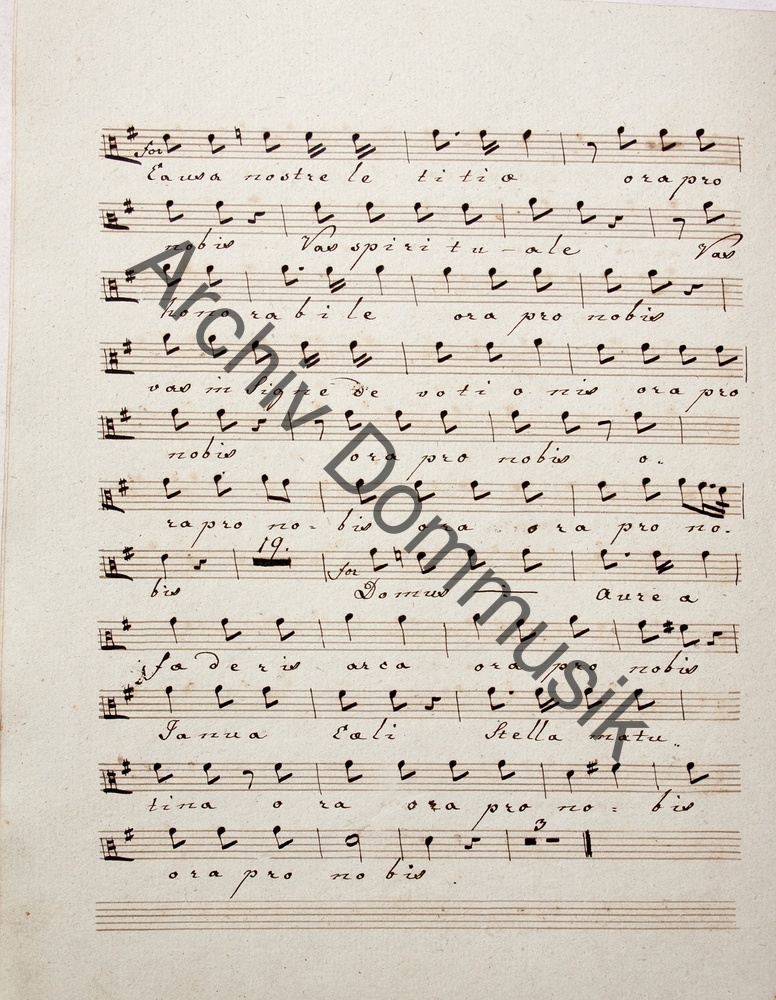 for
Causa nostre le titiæ ora pro
nobis Vas spiri tu - ale Vas
hono ra bi le ora pro nobis
vas in signe De vo ti o nis ora pro
nobis ora pro nobis o-
ra pro no - bis ora ora pro no-
19.
for
bis Domus Aurea
fœ de ris arca ora pro nobis
Janua Cœli Stella matu-
tina o ra ora pro no = bis
3
ora pro no bis
Archiv Dommusik